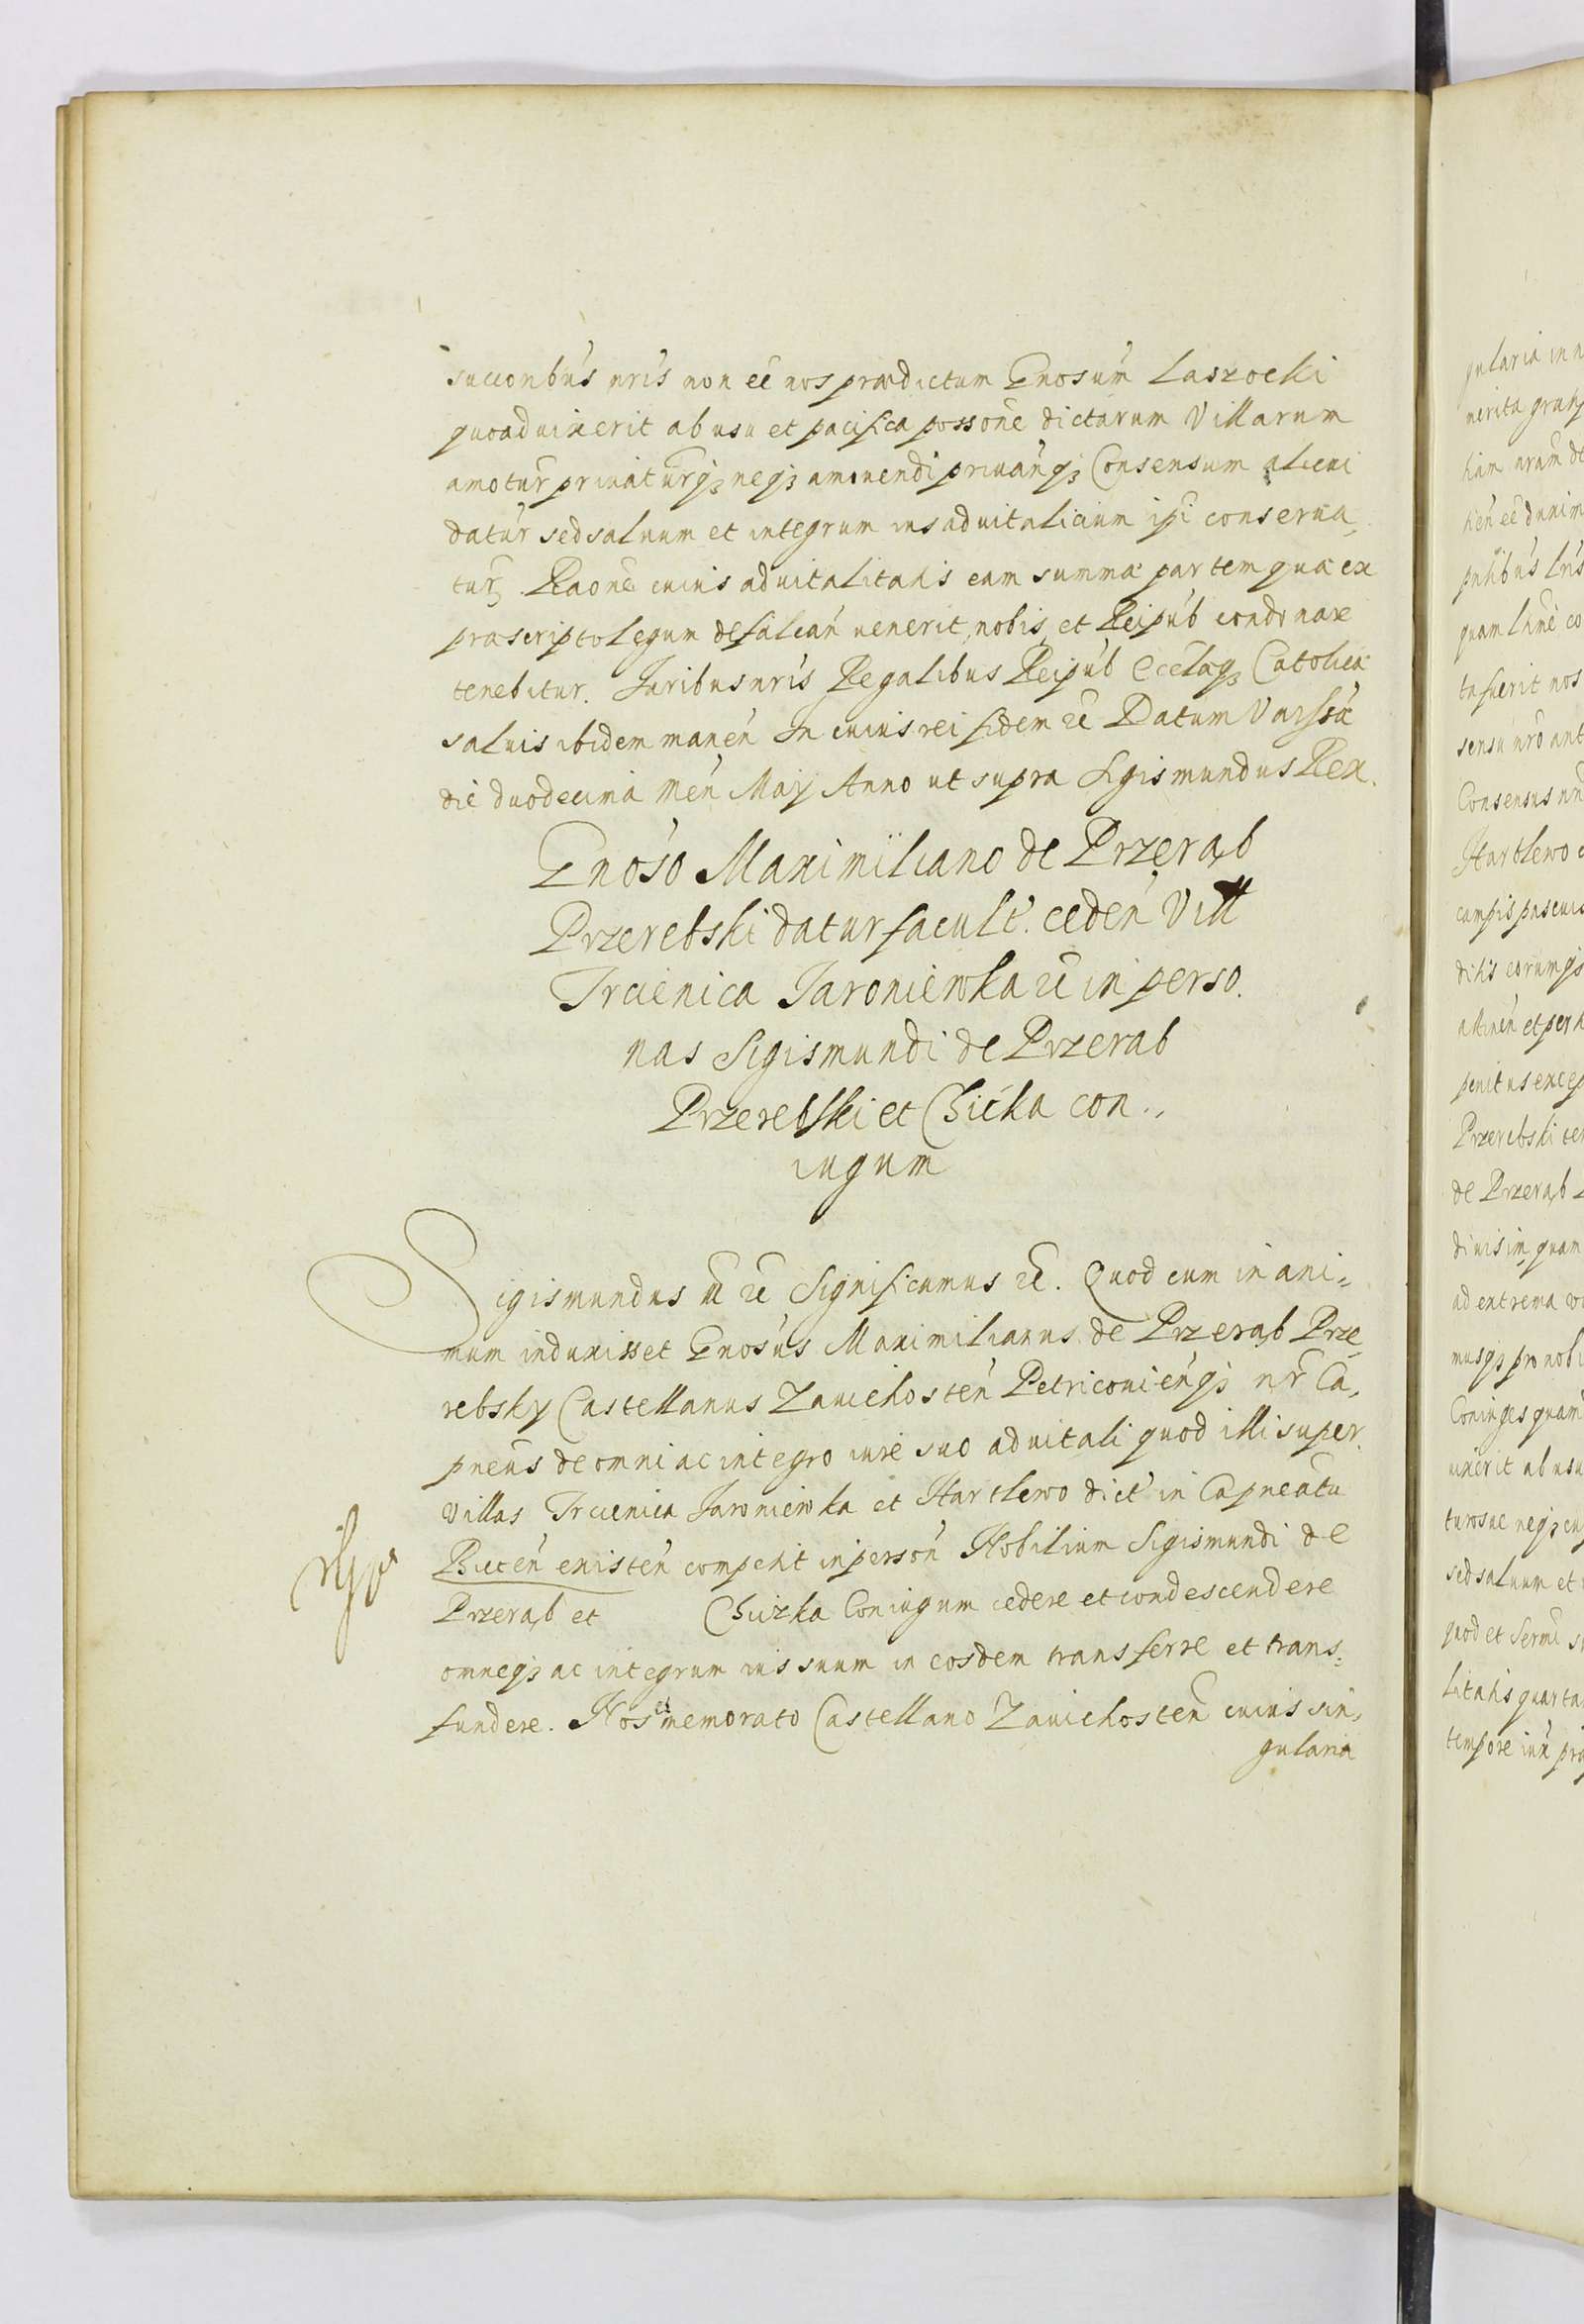 succonbus nris non eē nos prædictum Gnosum Laszocki
quoad uixerit ab usu et pacifica possone dictarum Villarum
amotur priuaturqȝ neqȝ amouendi priuanqȝ Consensum alicui
datur sed saluum et integrum ius aduitalicium ipi conserua,
tur, Raone cuius aduitalitatis eam summa partem qua ex
præscripto legum defalcan uenerit, nobis et Reipub condonare
tenebitur. Juribus nris Regalibus Reipub Ecclæqȝ Catolica
saluis ibidem manen In cuius rei fidem ec Datum Varssa
die duodecima Men Maij Anno ut supra Sigismundus Rex.
Gnoso Maximiliano de Przerąb
Przerebski datur facult. ceden Vill
Trcienica Jaroniewka ec in perso.
nas Sigismundi de Przerab
Przerebski et Chićka con.,
iugum
Sigismundus ec ec Significamus ec. Quod cum in ani=
mum induxisset Gnosus Maximilianus de Przerąb Prze,
rebsky Castellanus Zauichosten Petriconienqȝ nr Ca,
pneus de omni ac integro iure suo aduitali quod illi super
Villas Trcienica Jaroniewka et Hartlewo dict in Capneatu
Bieten existen competit in person Nobilium Sigismundi de
Przerąb et Chiczka Coniugum cedere et condescendere
omneqȝ ac integrum ius suum in eosdem transferre et trans=
fundere. Nos memorato Castellano Zauichosten cuius sin,
gularia
gularia in n
merita grati
hum nram de
hen eē duxim
quam
ta fuerit nos
sensu nro ant
Consensus
Hartlewo
campis pascuis
ditis eorumqȝ
attinen et per
penitus excep
Przerebski
de Przerąb
diuisim, quam
ad extrema
musqȝ pro nob
Coniuges quam
uixerit ab usu
turosue neqȝ
sed saluum et
quod et
litatis quarta
tempore